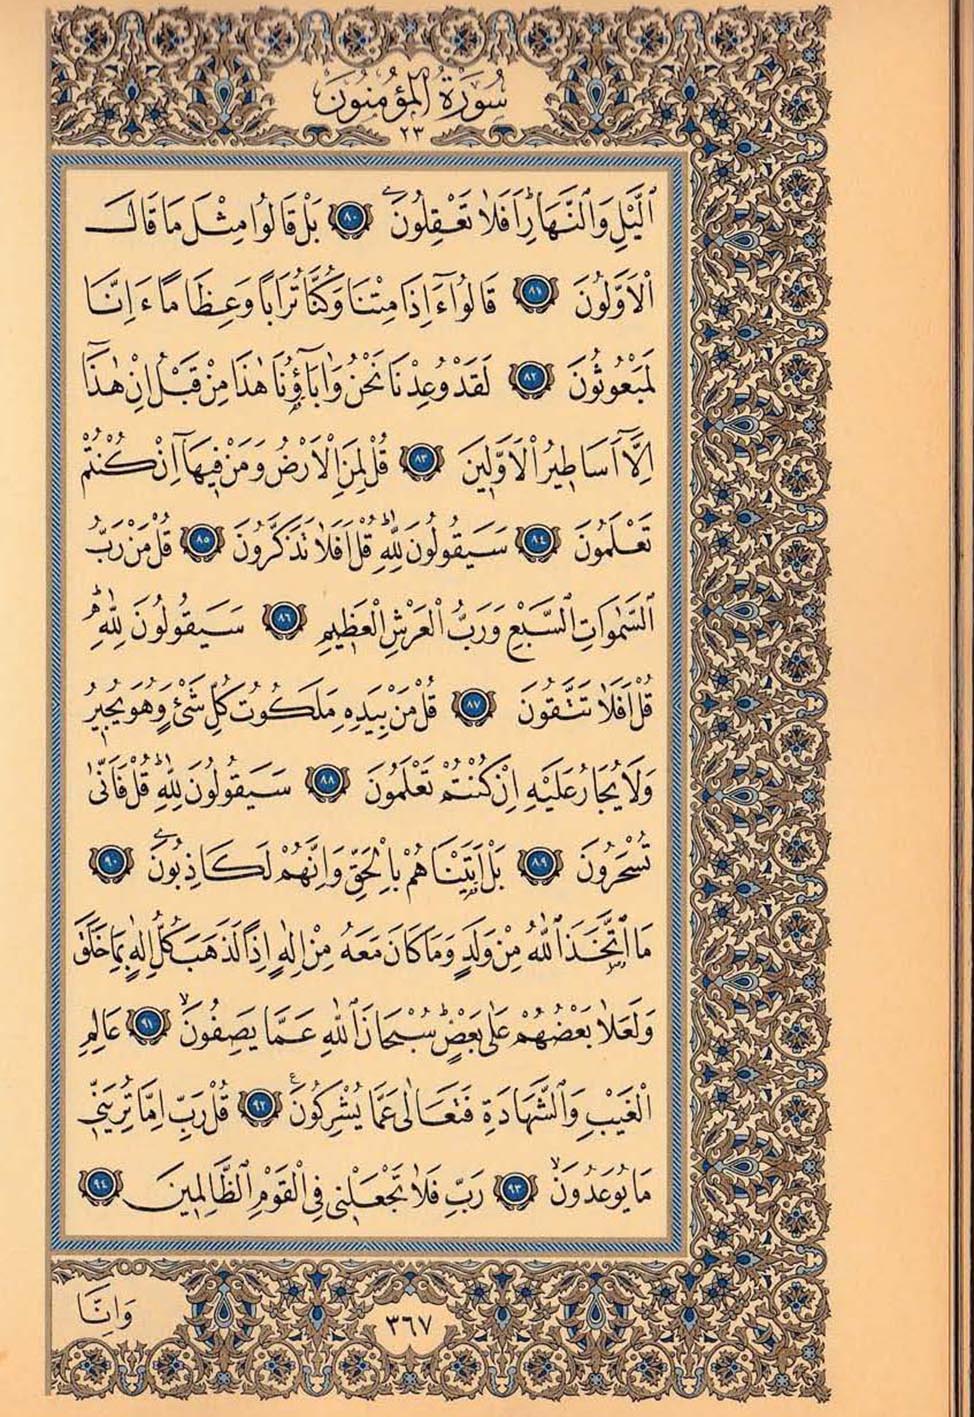 سُورَةُ الْمُؤْمِنُونَ
٢٣
اَلَّيْلِ وَالنَّهَارِۜ اَفَلَا تَعْقِلُونَ ﴿٨٠﴾ بَلْ قَالُوا مِثْلَ مَا قَالَ
الْاَوَّلُونَ ﴿٨١﴾ قَالُوا ءَاِذَا مِتْنَا وَكُنَّا تُرَابًا وَعِظَامًا ءَاِنَّا
لَمَبْعُوثُونَ ﴿٨٢﴾ لَقَدْ وُعِدْنَا نَحْنُ وَاٰبَآؤُنَا هٰذَا مِنْ قَبْلُ اِنْ هٰذَآ
اِلَّآ اَسَاطِيرُ الْاَوَّلِينَ ﴿٨٣﴾ قُلْ لِمَنِ الْاَرْضُ وَمَنْ فِيهَآ اِنْ كُنْتُمْ
تَعْلَمُونَ ﴿٨٤﴾ سَيَقُولُونَ لِلّٰهِۜ قُلْ اَفَلَا تَذَكَّرُونَ ﴿٨٥﴾ قُلْ مَنْ رَبُّ
السَّمٰوَاتِ السَّبْعِ وَرَبُّ الْعَرْشِ الْعَظِيمِ ﴿٨٦﴾ سَيَقُولُونَ لِلّٰهِۜ
قُلْ اَفَلَا تَتَّقُونَ ﴿٨٧﴾ قُلْ مَنْ بِيَدِهِ مَلَكُوتُ كُلِّ شَيْءٍ وَهُوَ يُجِيرُ
وَلَا يُجَارُ عَلَيْهِ اِنْ كُنْتُمْ تَعْلَمُونَ ﴿٨٨﴾ سَيَقُولُونَ لِلّٰهِۜ قُلْ فَاَنّٰى
تُسْحَرُونَ ﴿٨٩﴾ بَلْ اَتَيْنَاهُمْ بِالْحَقِّ وَاِنَّهُمْ لَكَاذِبُونَ ﴿٩٠﴾
مَا اتَّخَذَ اللّٰهُ مِنْ وَلَدٍ وَمَا كَانَ مَعَهُ مِنْ اِلٰهٍ اِذًا لَذَهَبَ كُلُّ اِلٰهٍ بِمَا خَلَقَ
وَلَعَلَا بَعْضُهُمْ عَلٰى بَعْضٍۜ سُبْحَانَ اللّٰهِ عَمَّا يَصِفُونَۙ ﴿٩١﴾ عَالِمِ
الْغَيْبِ وَالشَّهَادَةِ فَتَعَالٰى عَمَّا يُشْرِكُونَ ﴿٩٢﴾ قُلْ رَبِّ اِمَّا تُرِيَنِّي
مَا يُوعَدُونَۙ ﴿٩٣﴾ رَبِّ فَلَا تَجْعَلْنِي فِي الْقَوْمِ الظَّالِمِينَ ﴿٩٤﴾
وَاِنَّا
٣٦٧